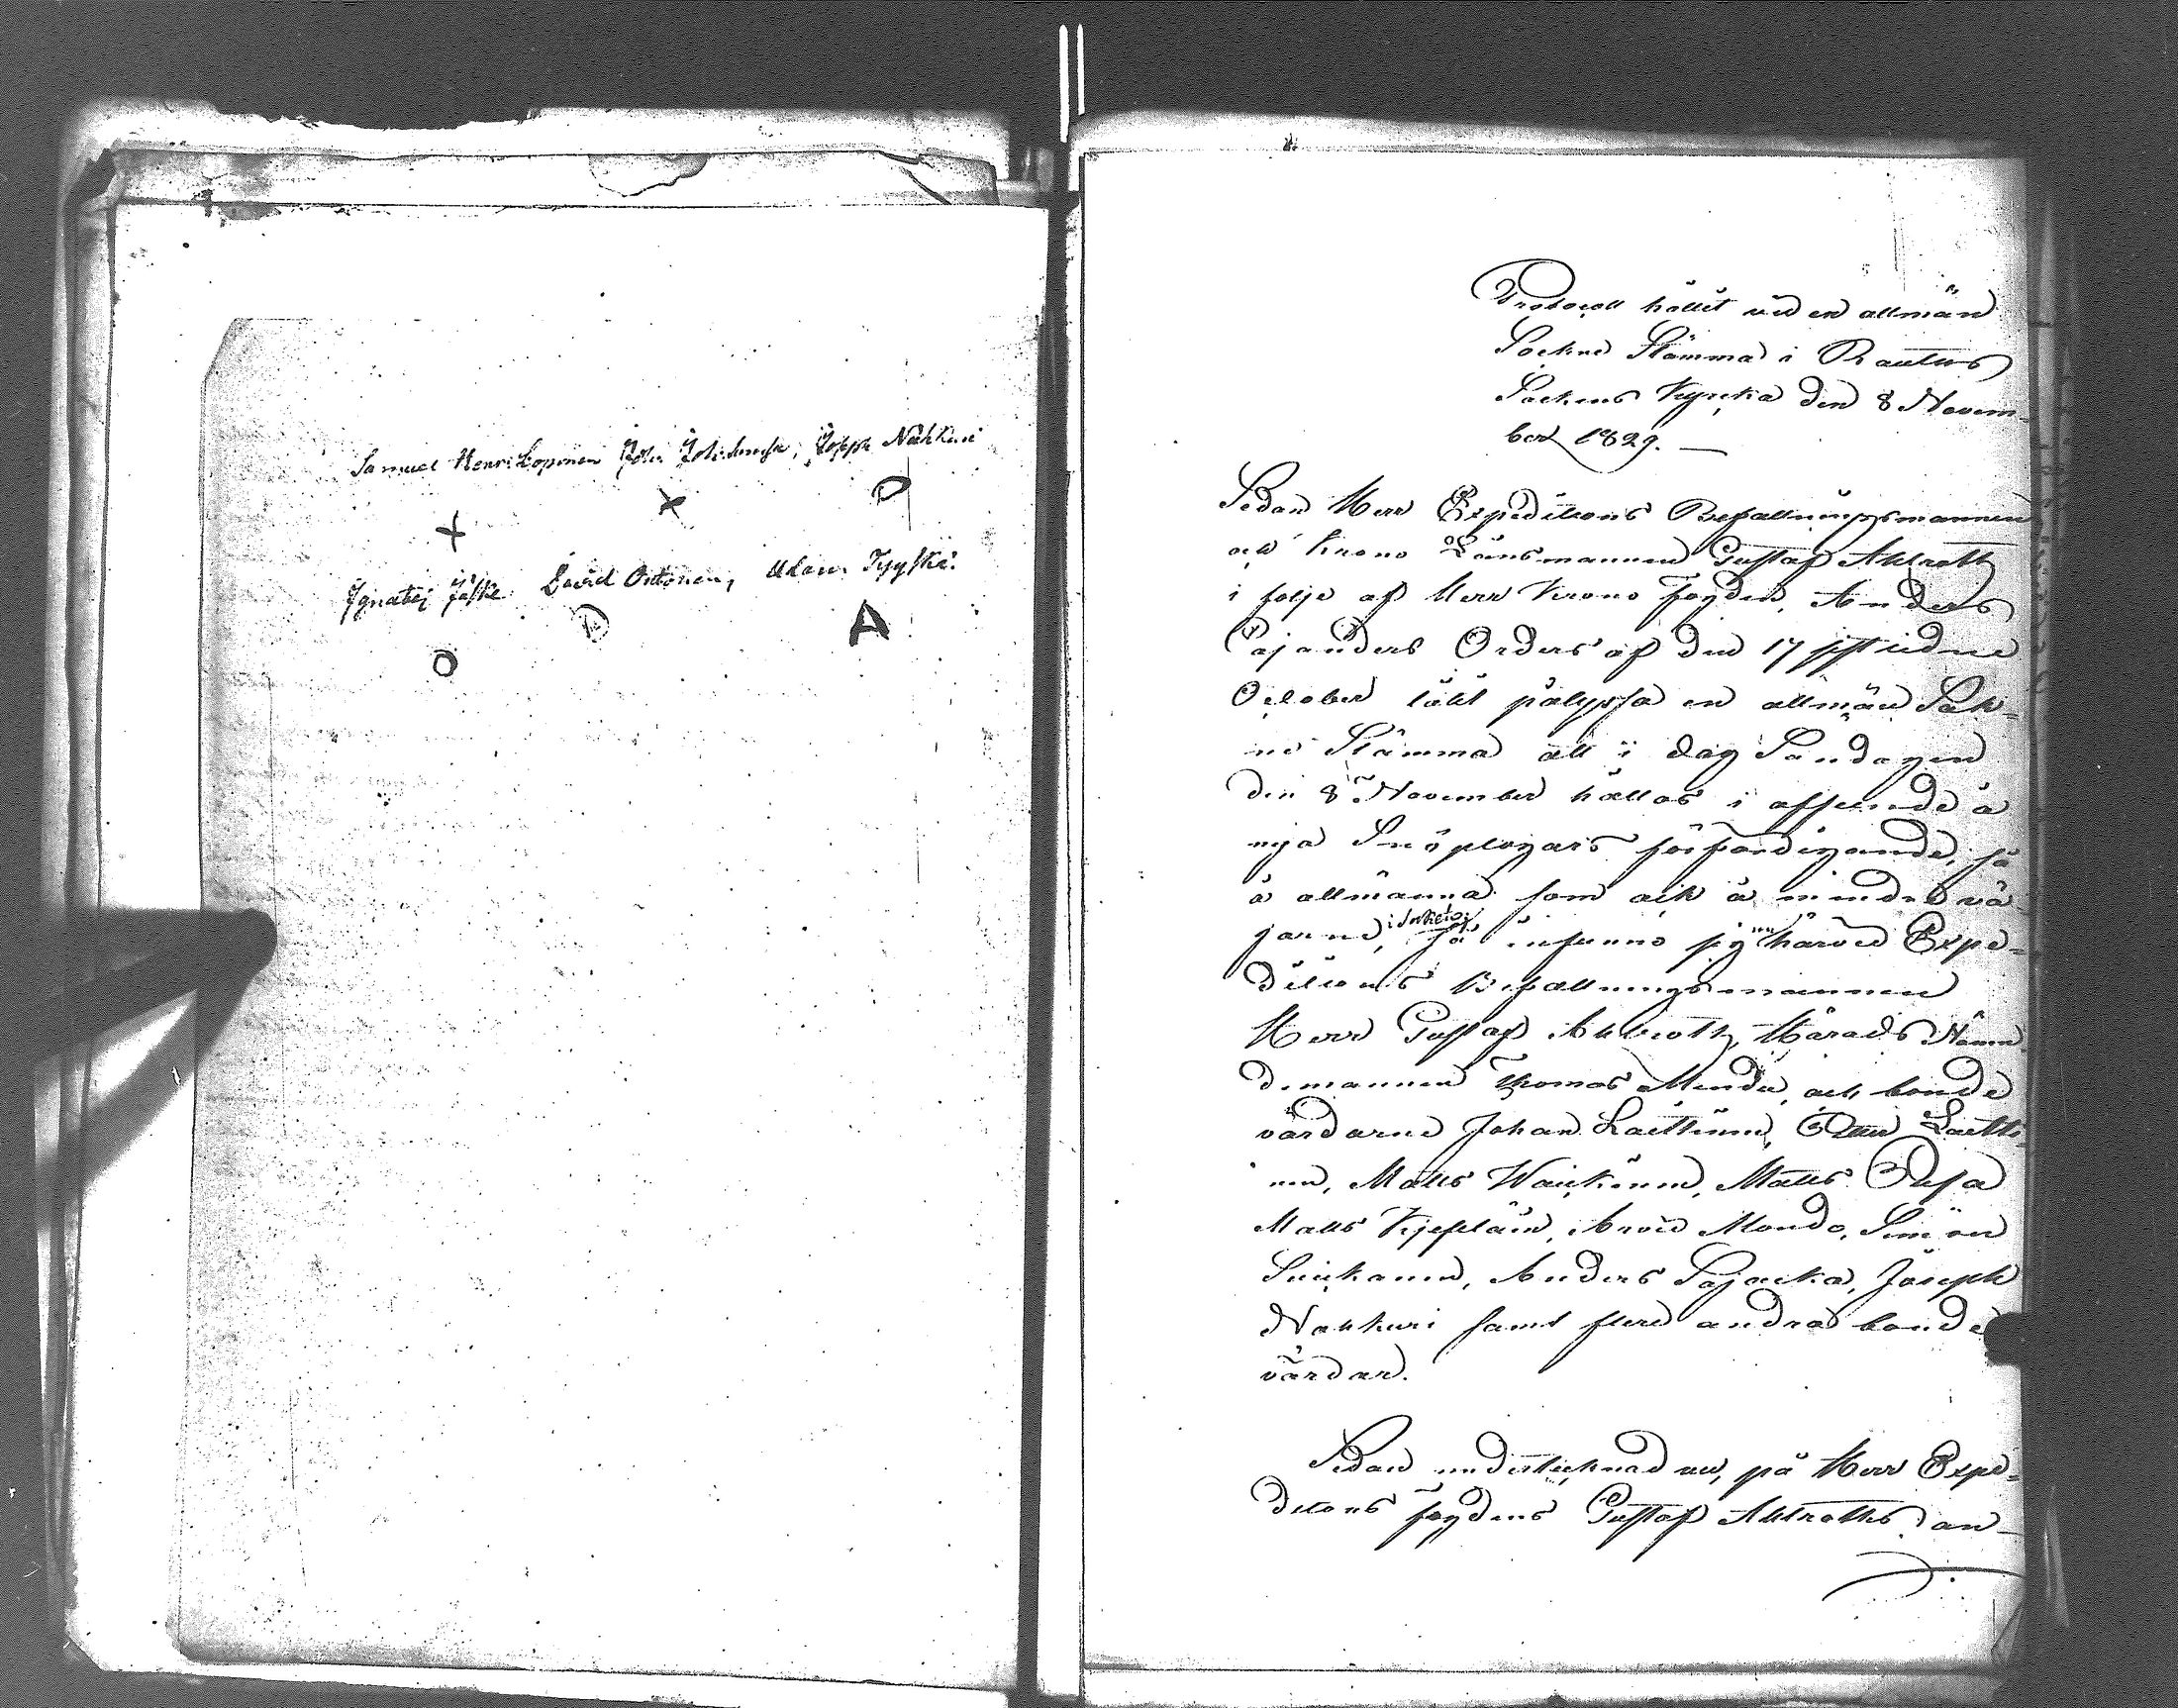 Samuel Henr: Loponen Joh: Joh: Joseph Nahkuri
+ x D
Ignatei Jäske David Ortonen, Adam Tyyskä:
O D A
Protocoll hållit vid en allmän
Sockne Stämma i Rautus
Sockens Kyrcka den 8 Novem-
ber 1829. —
Sedan Herr Expeditions Befallningsmannen
och Krono Länsmannen Gustaf Ahlroth
i följe af Herr Krono Fogden, Anders
Cajanders Orders af den 17 sistledne
October låtit pålyssa en allmän Sok-
ne Stämma att i dag Söndagen
den 8 November hållas i afseende å
nya Snöplogars förfärdigande, så
å allmänna som ock å mindre vä-
garne, i Sokne; Så infunno sig härvid Expe-
ditions Befallningsmannen
Herr Gustaf Ahlroth, Härads Näm̄n
demannen Thomas Mendu, och bonde
värdarne Johan Laittinen, Petter Laitti-
nen, Matts Waickinen, Matts Pusa
Matts Kjefläin, Arvid Mondo, Simon
Suickanen, Anders Pajacka, Joseph
Nahkuri samt flere andra bonde
värdar.
Sedan undertecknad nu, på Herr Expe-
ditions fogdens Gustaf Ahlroths an-